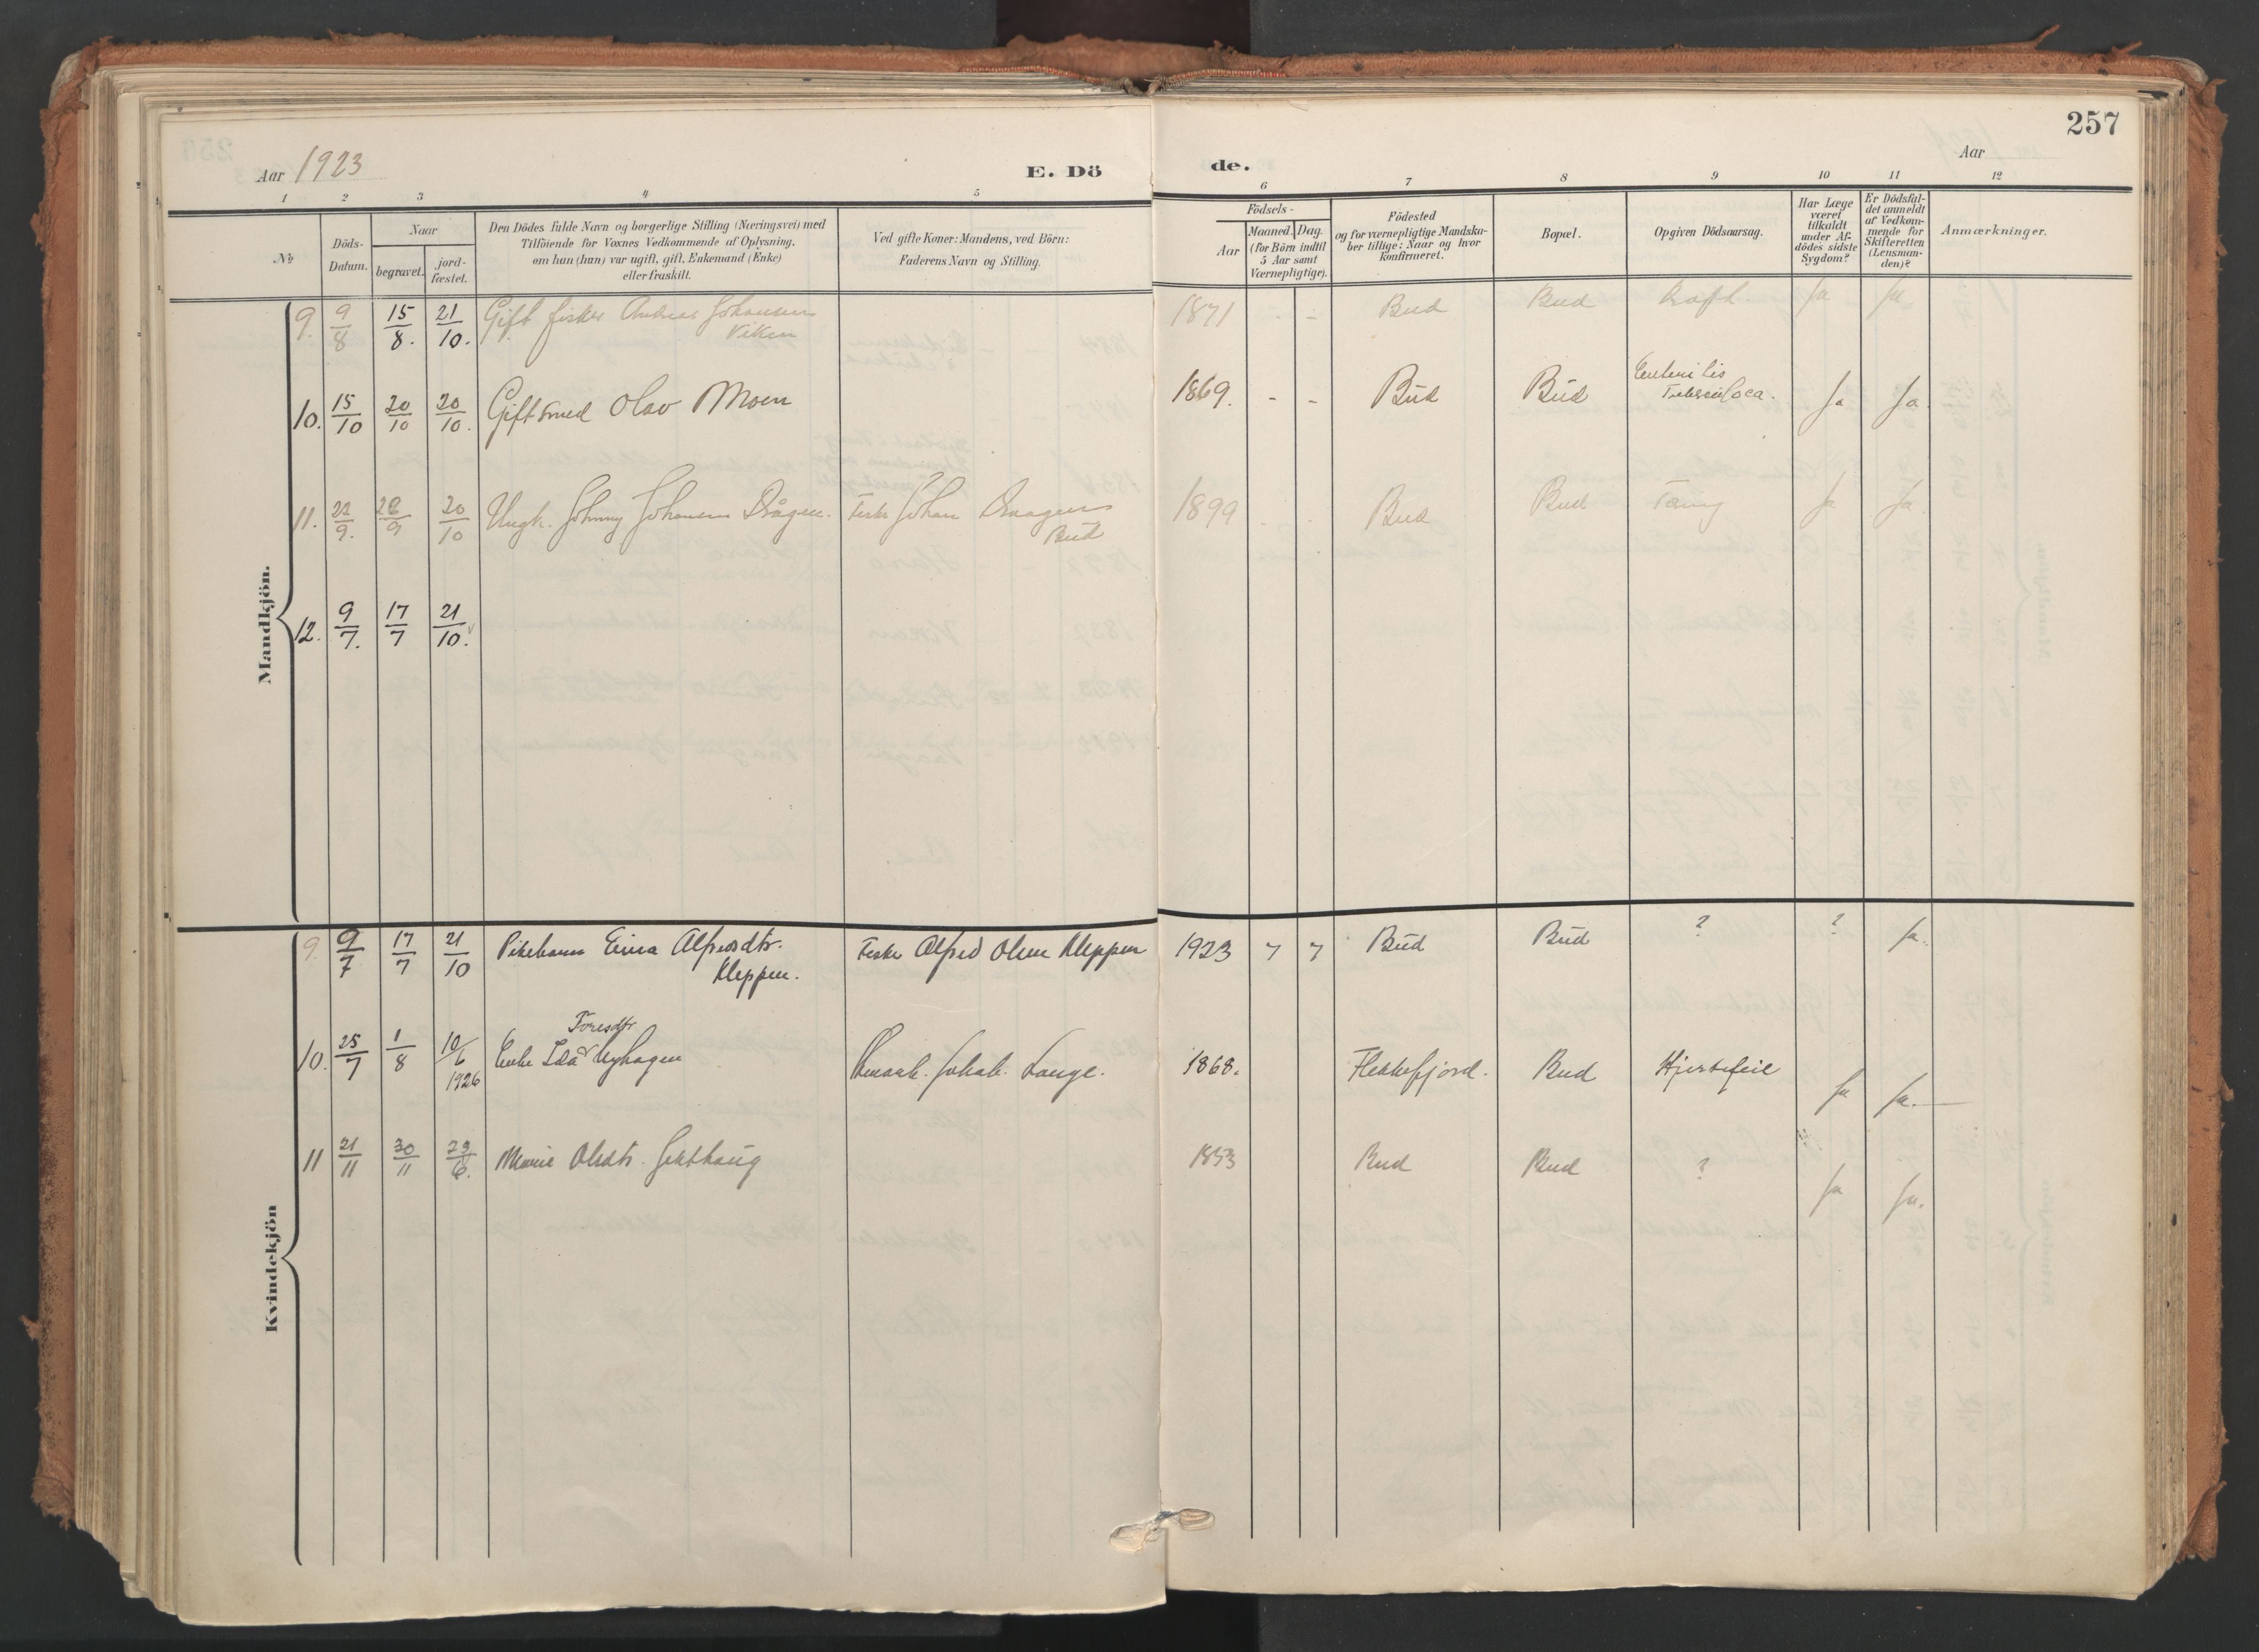 257
Aar 1923
E. Dö
de.
Aar
1 2 3 4 5 6 7 8 9 10 11 12
No
Döds-
Datum.
Naar
begravet.
jord-
fæstet.
Den Dödes fulde Navn og borgerlige Stilling (Næringsvei) med
Tilföiende for Voxnes Vedkommende af Oplysning,
om han (hun) var ugift, gift, Enkemand (Enke)
eller fraskilt.
Ved gifte Koner: Mandens, ved Börn:
Faderens Navn og Stilling.
Födsels-
Aar
Maaned. Dag.
(for Börn indtil
5 Aar samt
Værnepligtige).
Födested
og for værnepligtige Mandska-
ber tillige: Naar og hvor
Konfirmeret.
Bopæl.
Opgiven Dödsaarsag.
Har Læge
været
tilkaldt
under Af-
dödes sidste
Sygdom?
Er Dödsfal-
det anmeldt
af Vedkom-
mende for
Skifteretten
(Lensman-
den)?
Anmærkninger.
Mandkjön.
9. 9/8 15/8. 21/10. Gift fisker Andreas Johansen 1871 - - Bud Bud Ja Ja
Viken
10. 15/10 20/10 20/10. Gift smed Olav Moen 1869. - - Bud Bud Ja Ja.
Tuberculosa.
11. 22/9. 28/9 20/10 Ungk. Johnny Johansen Drågen. Fisker Johan Draagen 1899 Bud Bud Ja Ja.
Bud
12. 9/7. 17/7 21/10.
Kvindekjön
9. 9/7 17/7 21/10 Pikebarn Alfredsdtr. Fisker Alfred Olsen Kleppen 1923 7 7 Bud Bud ? ? Ja.
Kleppen.
Toresdtr
10. 25/7 1/8 10/6 1926 Enke Nyhagen Jakob Lange. 1868. Flekkefjord. Bud Hjertefeil Ja Ja.
11 21/11 30/11 23/6. Marie Olsdtr. 1853 Bud Bud ? Ja Ja.